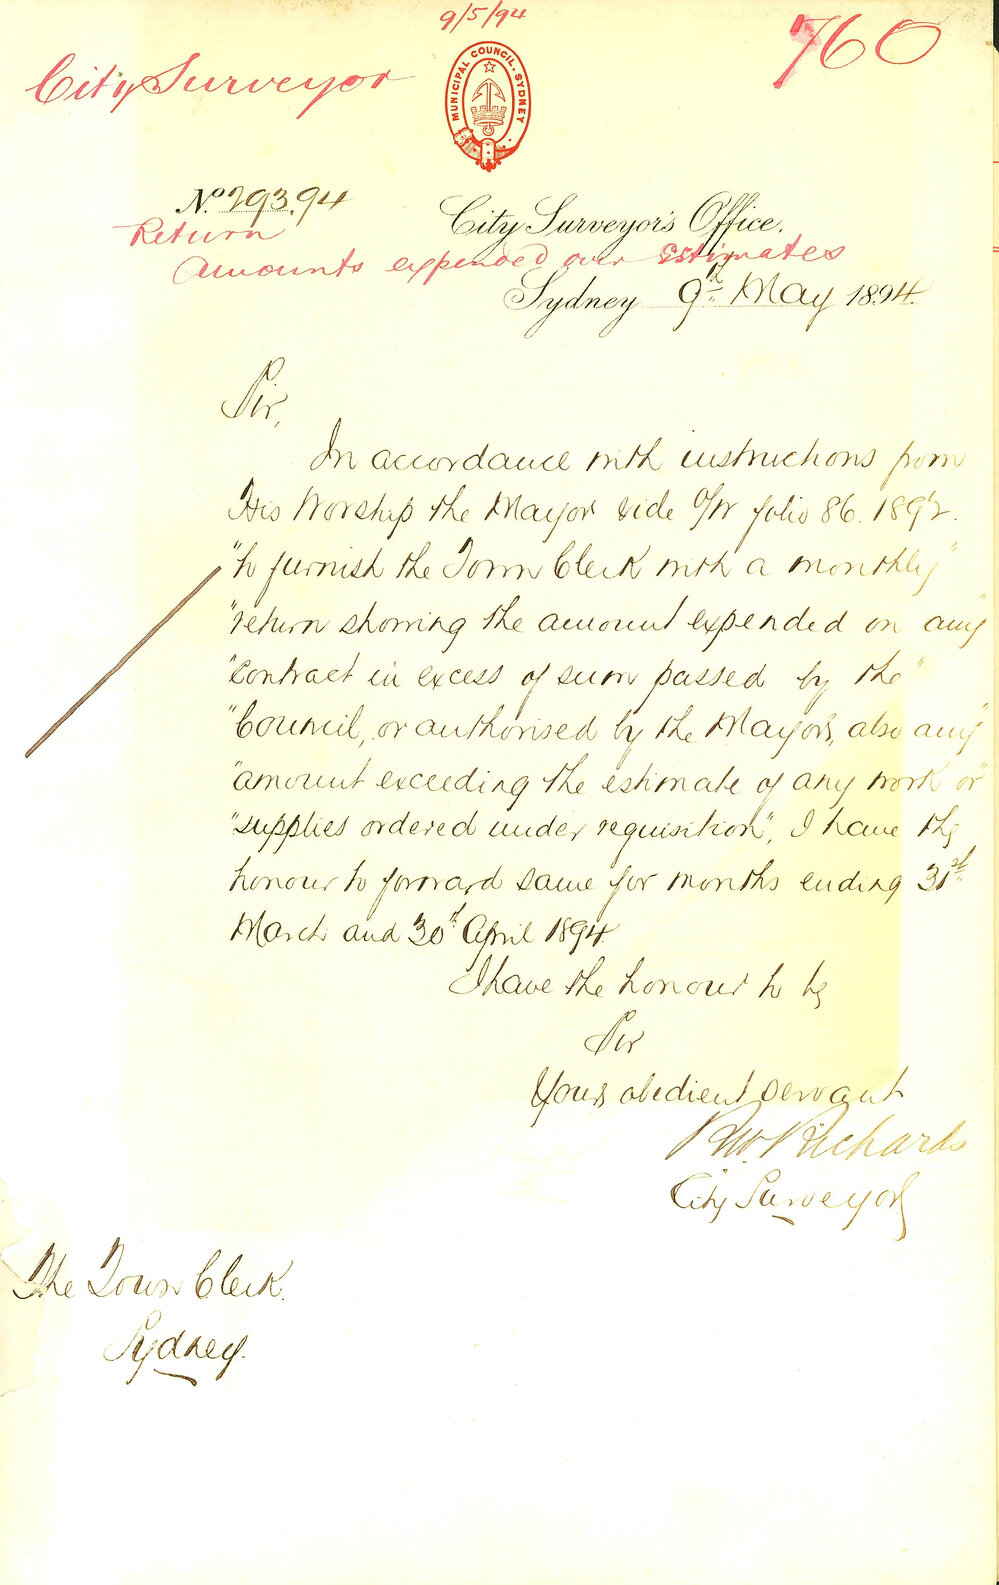 9/5/94
760
City Surveyor
MUNICIPAL COUNCIL. SYDNEY
No. 293.94
City Surveyor's Office,
Return
Amounts expended over Estimates
Sydney 9th May 1894.
Sir,
In accordance with instructions from
His Worship the Mayor vide folio 86. 1892.
"to furnish the Town Clerk with a monthly"
"return showing the amount expended on any"
"contract in excess of sum passed by the"
"Council, or authorised by the Mayor, also any"
"amount exceeding the estimate of any work or"
"supplies ordered under requisition", I have the
honour to forward same for months ending 31st
March and 30th April 1894.
I have the honour to be
Sir
Your obedient servant
R W Richards
City Surveyor
The Town Clerk.
Sydney.